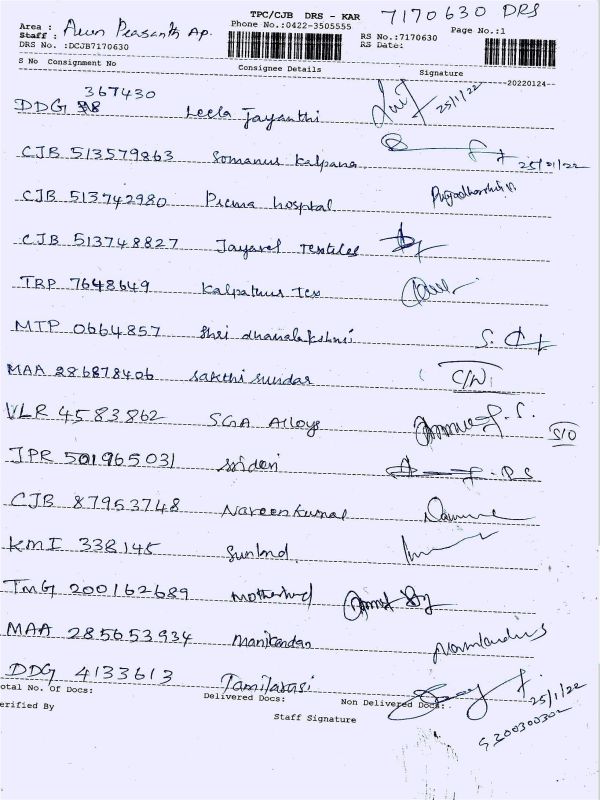 TPC/CJB DRS - KAR
7170630 DRS
Area :
Phone No.:0422-3505555
Page No.:1
Staff :
RS No.:7170630
DRS No. :DCJB7170630
RS Date:
S No Consignment No Consignee Details Signature
--20220124--
367430
DDG Leela Jayanthi 25/1/22
CJB 513579863 Somanur Kalpana 25/01/22
CJB 513742980 Prema hospital
CJB 513748827 Jayavel Textiles
TRP 7648649 Kalpatharus Tex
MTP 0664857 Shri dhanalakshmi
MAA 286878406 Sakthi Sundar C/W
VLR 4583862 SGA Alloys
S/O
JPR 501965031 Sridevi
CJB 87953748 Naveenkumar
KMI 338145
TMG 200162689
MAA 285653934 Manikandan
DDG 4133613 Tamilarasi
otal No. of Docs: Delivered Docs: Non Delivered Docs: 25/1/22
erified By
Staff Signature